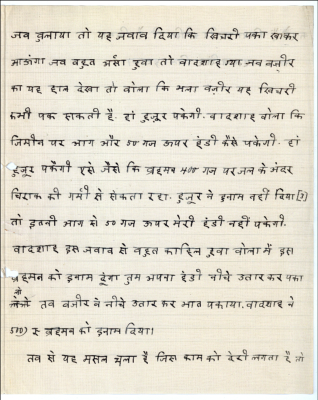 जब बुलाया तो यह जवाब दिया कि खिचरी पका खाकर
आऊंगा जब बहुत अर्सा हुवा तो बादशाह ग्या जब वजीर
का यह हाल देखा तो बोला कि भला वजीर यह खिचरी
कभी पक सकती है. हां हुजूर पकेगी. बादशाह बोला कि
जिमीन पर आग और ५० गज ऊपर हंडी कैसे पकेगी. हां
हुजूर पकेगी एसे जैसे कि ब्रहमन ४०० गज पर जल के अंदर
चिराक की गर्मी से सेकता रहा. हुजूर ने इनाम नहीं दिया[?]
तो इतनी आग से ५० गज ऊपर मेरी हंडी नहीं पकेगी.
बादशाह इस जवाब से बहुत काहिल हुवा बोला में इस
ब्रहमन को इनाम दूंगा तुम अपना हंडी नीचे उतार कर पका
तब वजीर ने नीचे उतार कर भात पकाया. बादशाह ने
५००) रु ब्रहमन को इनाम दिया।
तब से यह मसल चला है जिस काम को देरी लगता है तो